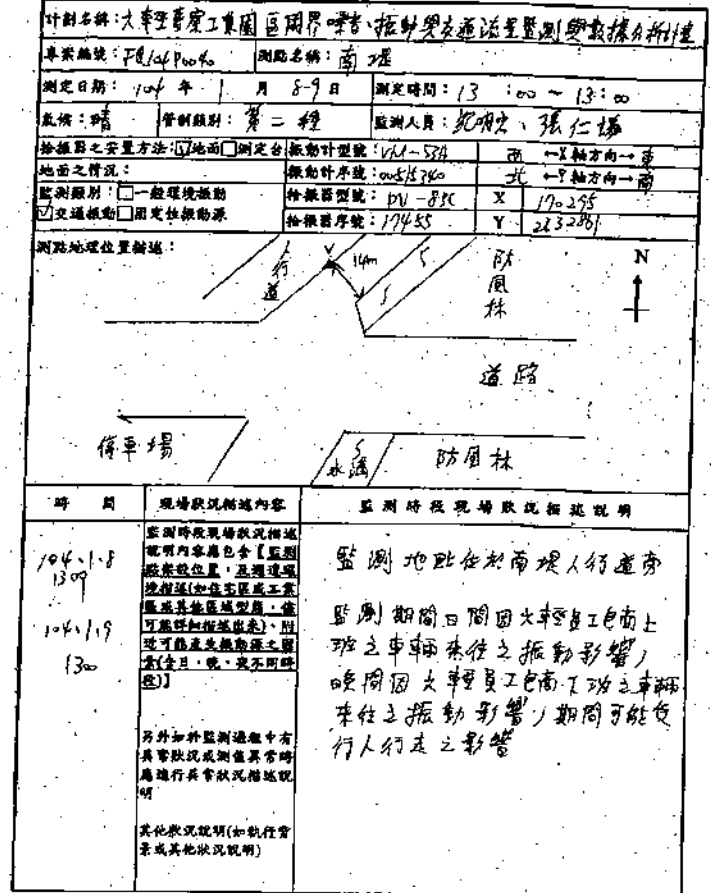 計劃名稱：六輕麥寮工業園區周界噪音、振動與交通流量監測與數據分析計畫
專案編號：FQ104P0040 測點名稱：南堤
測定日期：104 年 1 月 8-9 日 測定時間：13：00～13：00
氣候：晴 管制類別：第二種 監測人員：張仁
檢振器之安置方法：☑地面□測定台 振動計型號：VM-53A 西 ←X軸方向→ 東
地面之情況： 振動計序號：00515340 北 ←Y軸方向→ 南
監測類別：□一般環境振動 檢振器型號：PV-83C X 170295
☑交通振動□固定性振動源 檢振器序號：17455 Y 2632861
測點地理位置描述：
人行道
V
14m
防風林
N
道路
停車場
水溝
防風林
時 間 現場狀況描述內容 監測時段現場狀況描述說明
104.1.8
1300
104.1.9
1300
監測時段現場狀況描述
說明內容應包含【監測
點架設位置，及週遭環
境描述(如住宅區或工業
區或其他區域型態，儘
可能詳細描述出來)、附
近可能產生振動源之背
景(含日、晚、夜不同時
段)】
另外如於監測過程中有
異常狀況或測值異常時
應進行異常狀況描述說
明
其他狀況說明(如執行背
景或其他狀況說明)
監測地點位於南堤人行道旁
監測期間日間因六輕員工包商上
班之車輛來往之振動影響，
晚間因六輕員工包商下班之車輛
來往之振動影響，期間可能受
行人行走之影響